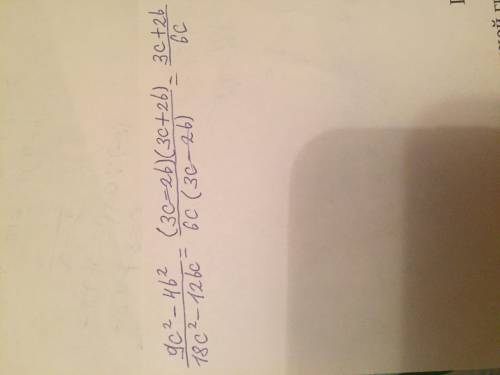 (9c² - 4b²)/(18c² - 12bc) = ((3c - 2b)(3c + 2b))/(6c(3c - 2b)) = (3c + 2b)/(6c)